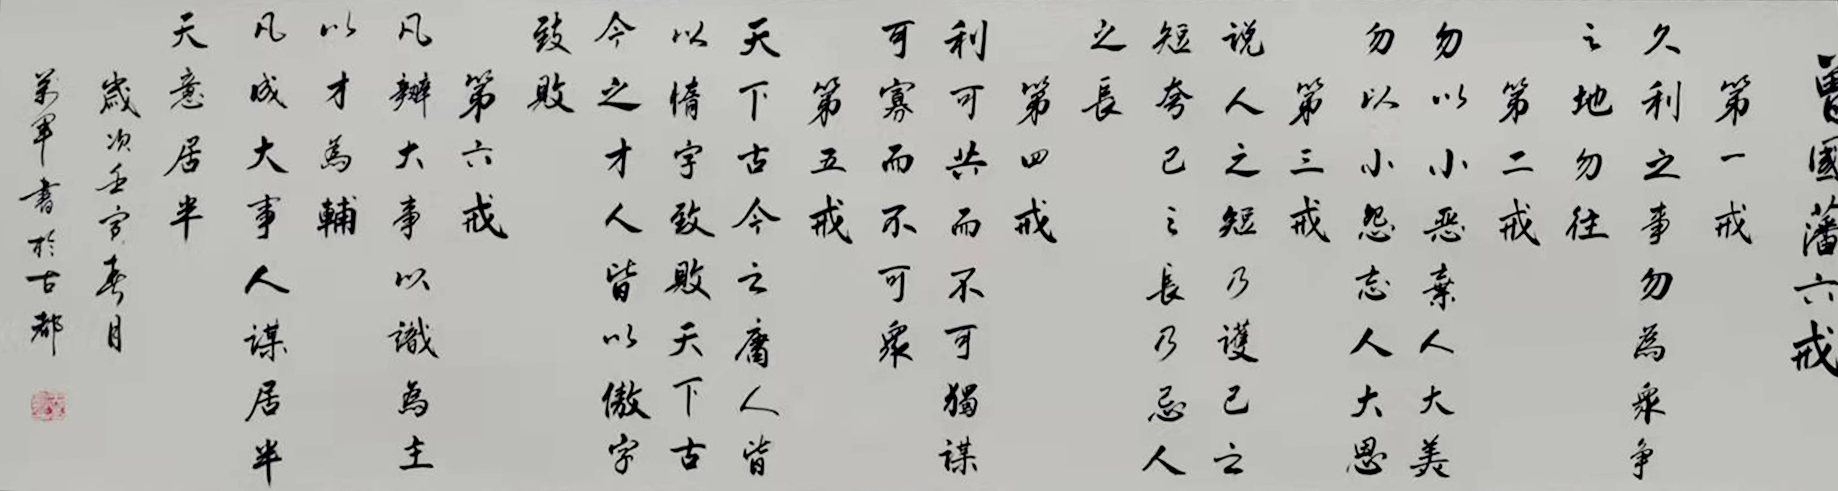 曾國藩六戒
第一戒
久利之事勿為衆争
之地勿往
第二戒
勿以小惡棄人大美
勿以小怨忘人大恩
第三戒
说人之短乃護己之
短夸己之長乃忌人
之長
第四戒
利可共而不可獨謀
可寡而不可衆
第五戒
天下古今之庸人皆
以惰字致敗天下古
今之才人皆以傲字
致敗
第六戒
凡辦大事以識為主
以才為輔
凡成大事人謀居半
天意居半
歲次壬寅春月
軍書於古都